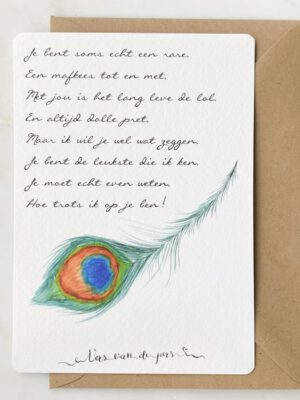 Je bent soms echt een rare.
Een mafkees tot en met.
Met jou is het lang leve de lol.
En altijd dolle pret.
Maar ik wil je wel wat zeggen.
Je bent de leukste die ik ken.
Je moet echt even weten.
Hoe trots ik op je ben!
Vers van de pers